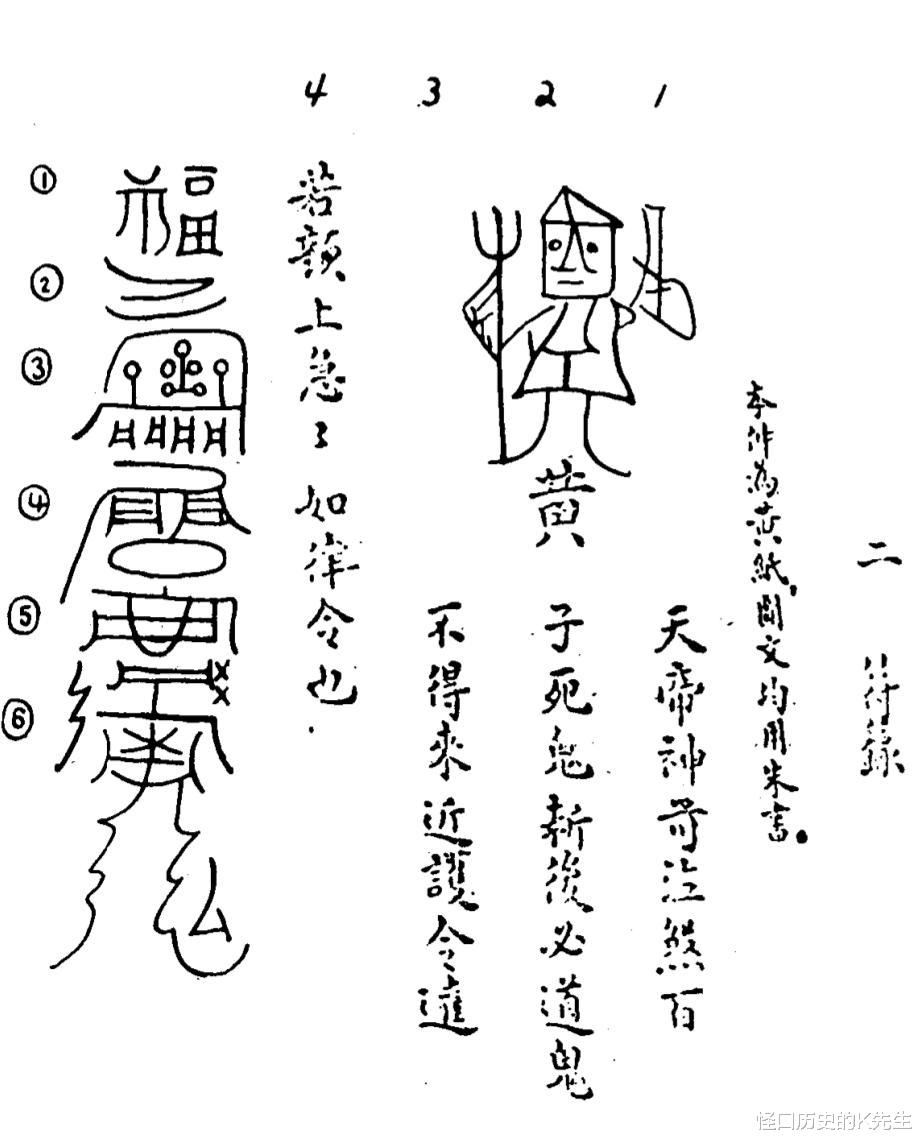 二 符籙
本件為黃紙,圖文均用朱書。
1 天帝神煞百
2 黃子死鬼斬後必道鬼
3 不得來近護令
4 若上急〻如律令也
①
福
②
③
④
⑤
⑥
怪口历史的K先生